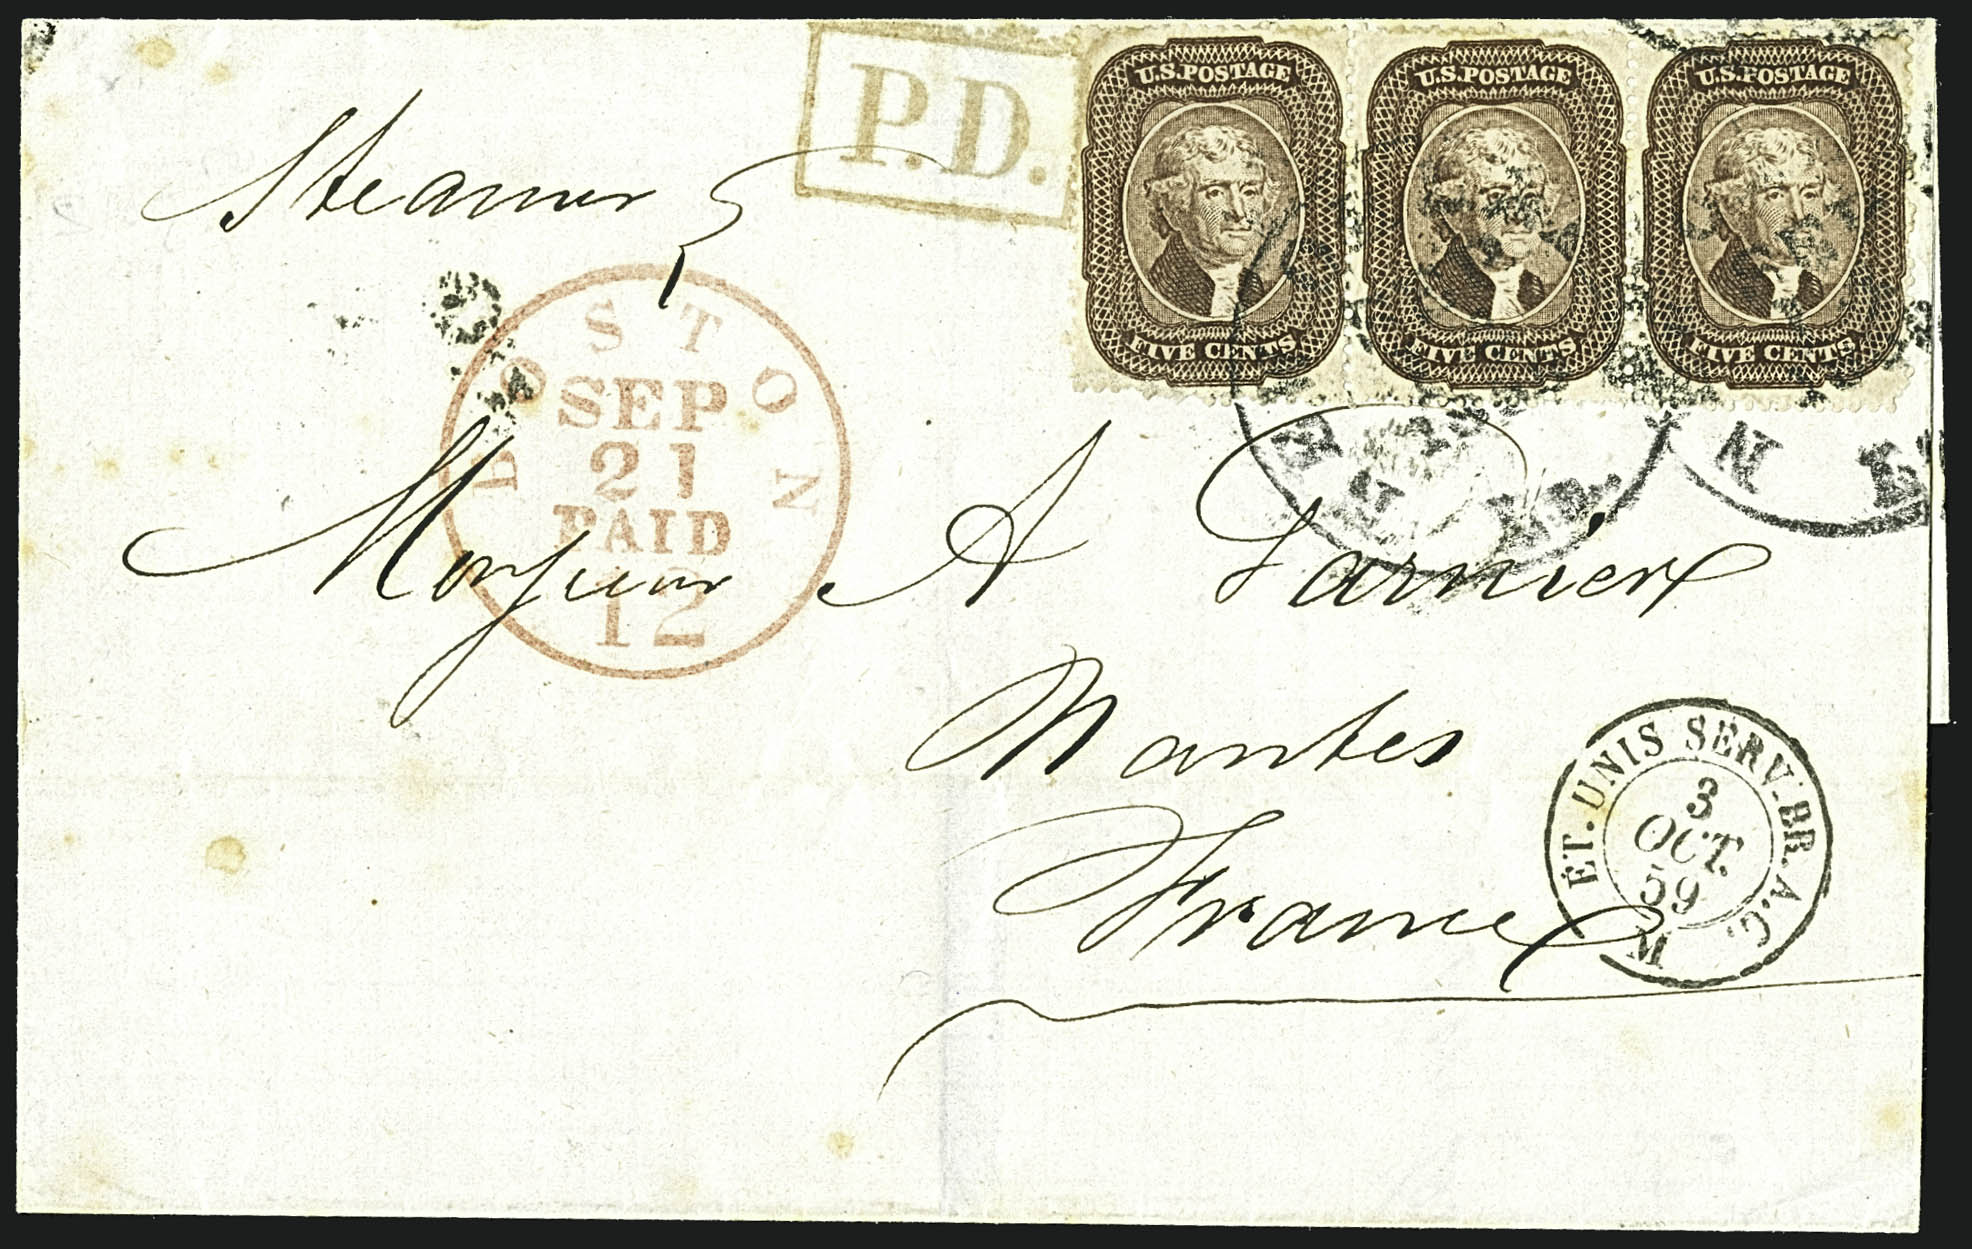 P.D.
U.S.POSTAGE
FIVE CENTS
U.S.POSTAGE
FIVE CENTS
U.S.POSTAGE
FIVE CENTS
Steamer
BOSTON
SEP
21
PAID
12
Monsieur A Garnier
Nantes
France
ET. UNIS SERV. BR. A.C.
3
OCT.
59